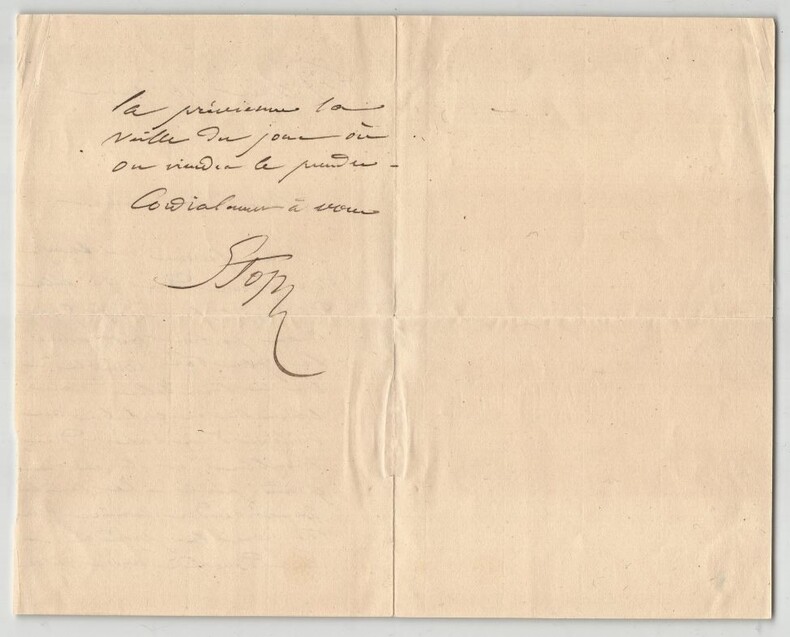 la prévienne la
veille du jour où
on viendra le prendre -
Cordialement à vous
Stop